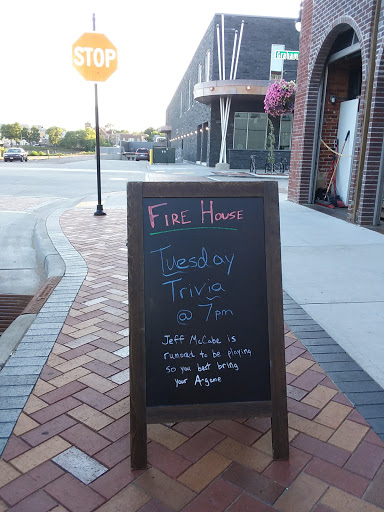 STOP
FIRE HOUSE
Tuesday
Trivia
@ 7pm
Jeff McCabe is
rumored to be playing
so you best bring
your A-game